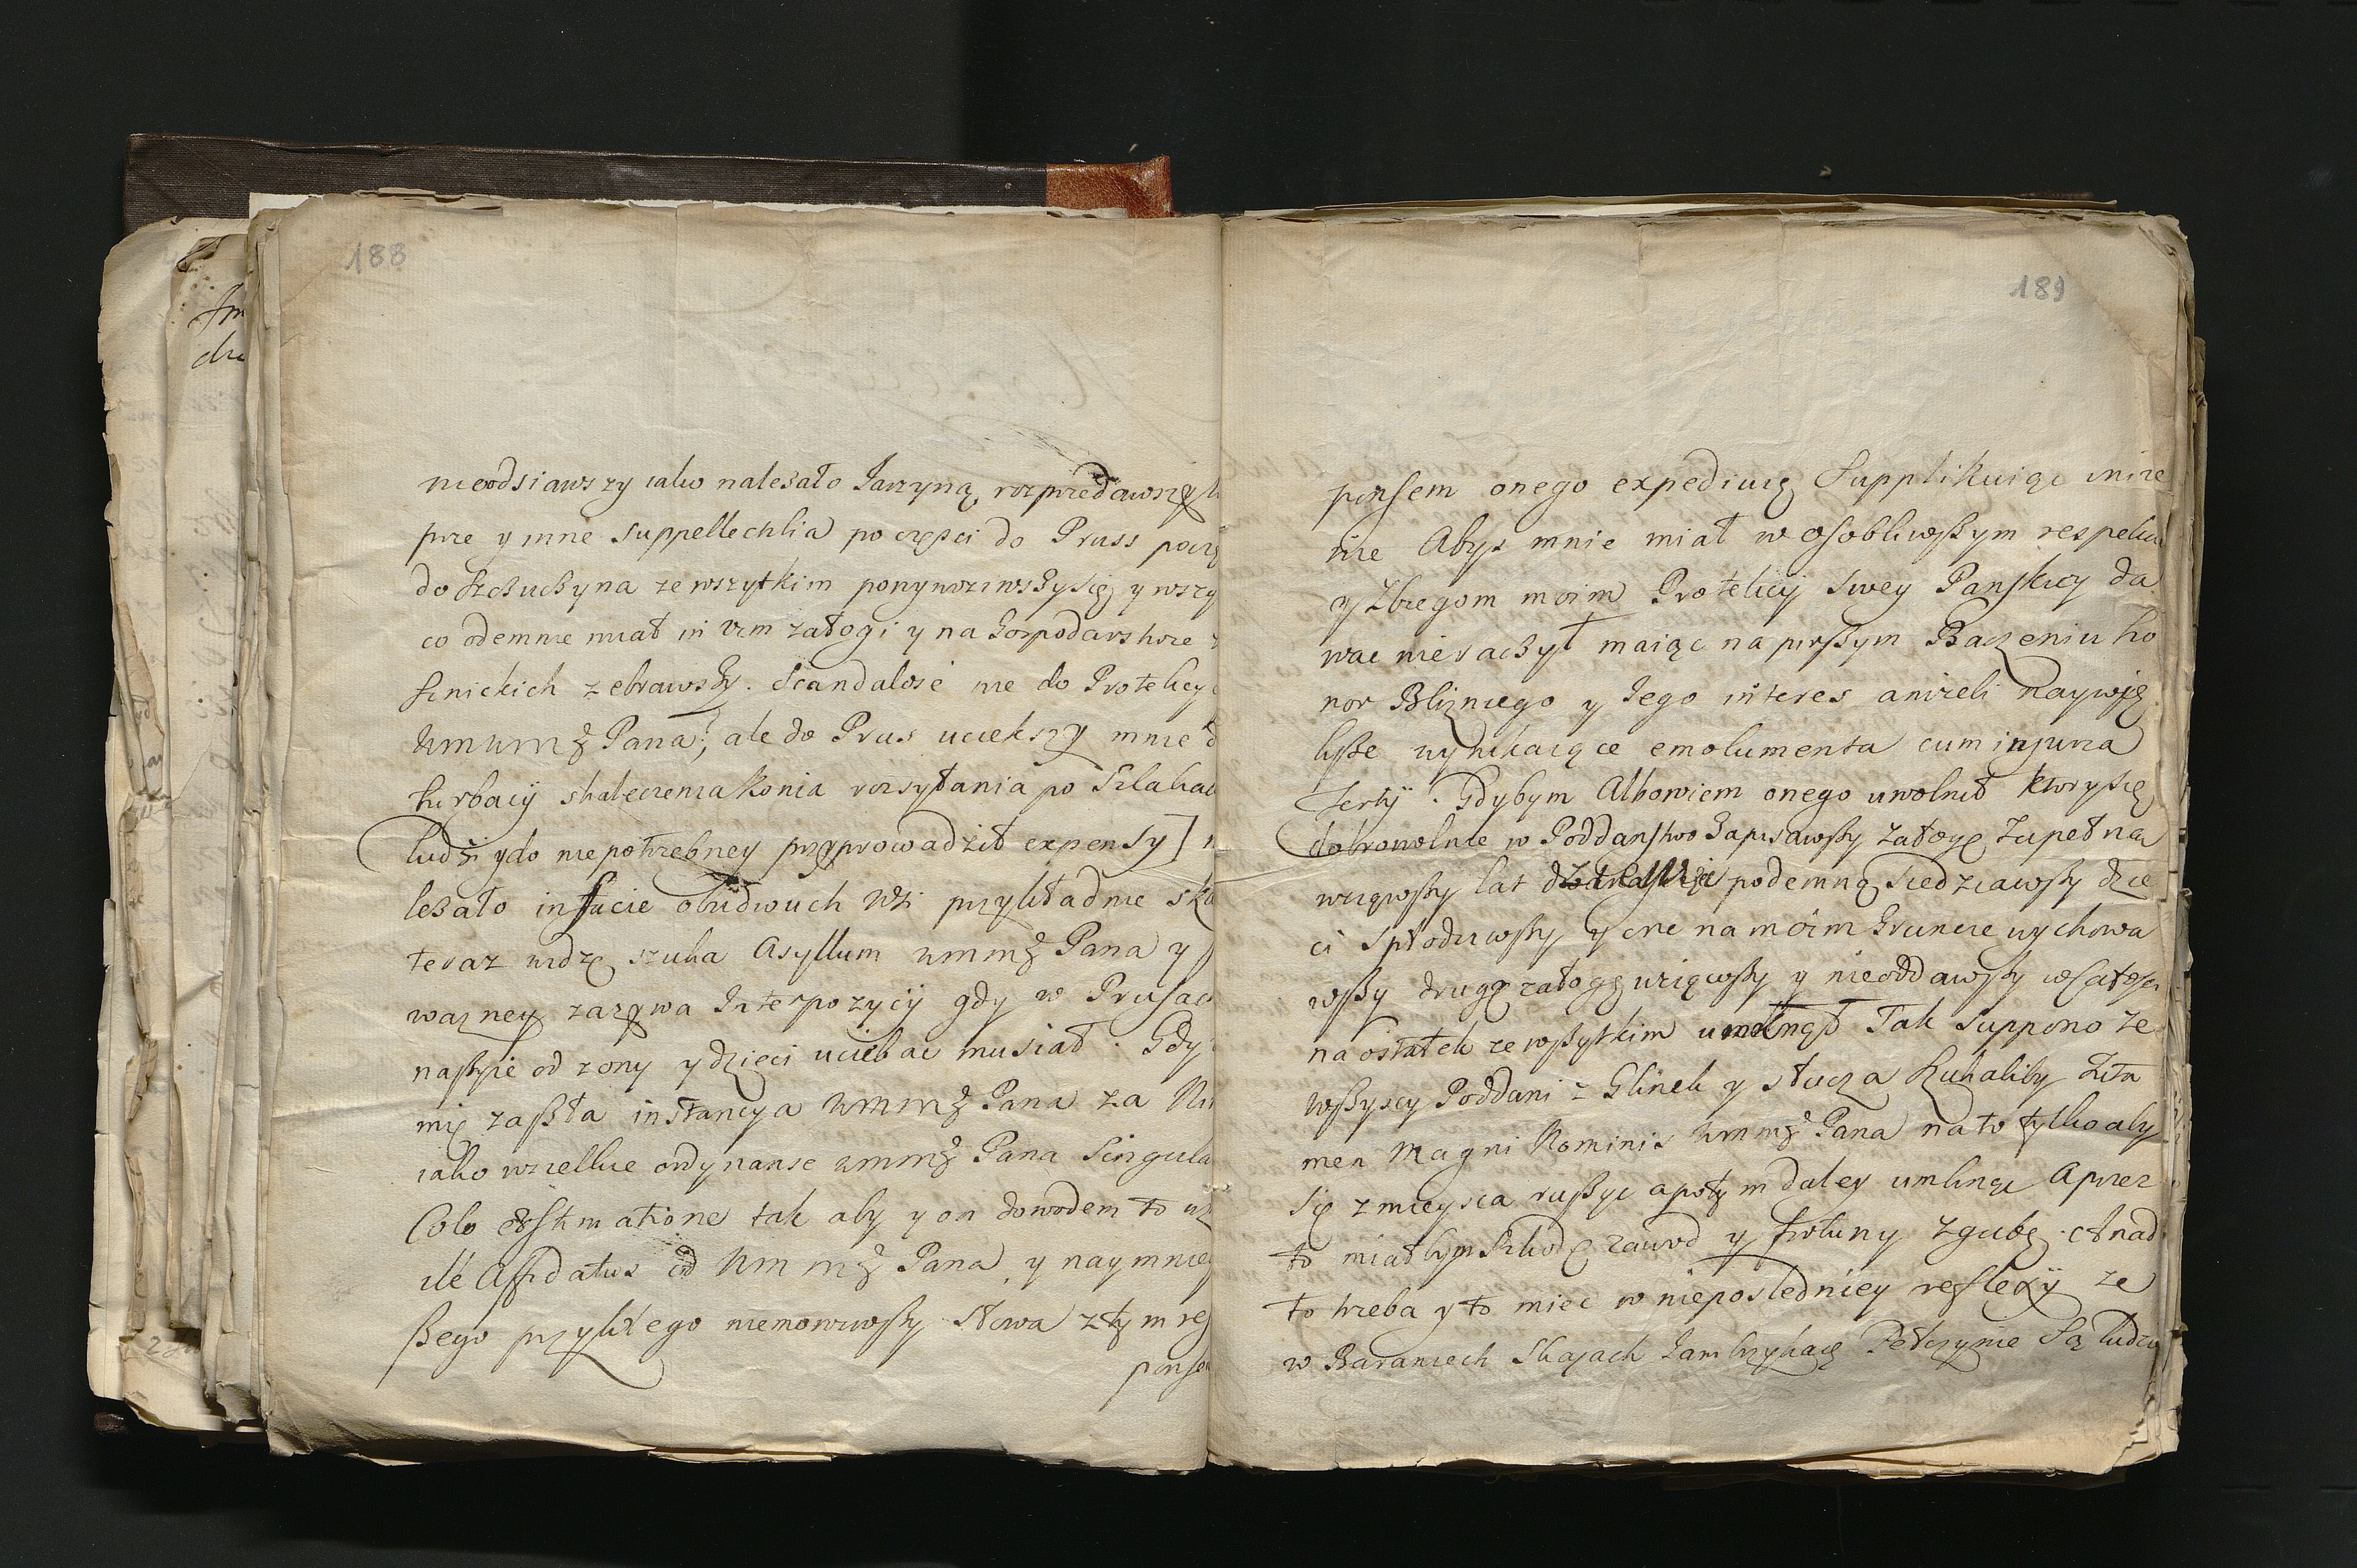 188
nieodsiawszy iako nalezało Jarzyną, rozprzedawszy
pre y inne suppellechlia po częsci do Pruss
do Szczuczyna ze wszytkim y wszy
co odemnie miał in vim załogi y na Gospodarstwie
zebrawszy. Scandalose nie do Protekcy
WMWMP Pana, ale do Prus uciekszy mnie
turbacij skaleczenia Konia rozsyłania po
ludzi y do niepotrzebney przyprowadził expensy]
lezało in facie obudwuch Wsi przykładnie
teraz widzę szuka Asyllum WMMP Pana y
wazney zazywa Interpozycij gdy w Prusach
od zony y dzieci uciekac musiał. Gdy
mię zaszła instancya WMMP Pana za
iako wszelkie ordynanse WMMP Pana Singula
Colo Estimatione tak aby y on dowodem to
ile Affidatus od WMMP Pana y naymniey
szego przykrego niemowiwszy słowa z tym res
ponse
189
ponsem onego expediuię Supplikuiąc
nie Abys mnie miał w osobliwszym respekcie
y Zbiegom moim Protekcij swey Panskiey da
wac nieraczył maiąc na pirszym Baczeniu ho
nor Blizniego y Jego interes anizeli naywię
ksze wynikaiące emolumenta cum injuria
Tertij. Gdybym Albowiem onego uwolnił ktory się
dobrowolnie w Poddanstwo Zapisawszy załogę Zupełna
wziąwszy lat podemną siedziawszy dzie
ci spłodziwszy y one na moim Gruncie wychowa
wszy drugą załogę wziąwszy y nieoddawszy w całosci
na ostatek ze wszytkim umknął Tak suppono ze
wszyscy Poddani z Glinek y słucza szukaliby
men Magni Nominis WMMP Pana na to tylko aby
się z mieysca ruszyc a potym daley umknąc A przez
to miałbym szkodę zawod y fortuny zgubę. A nad
to trzeba y to miec w nieposledniey reflexij ze
w Baraniech Skajach Są ludzie